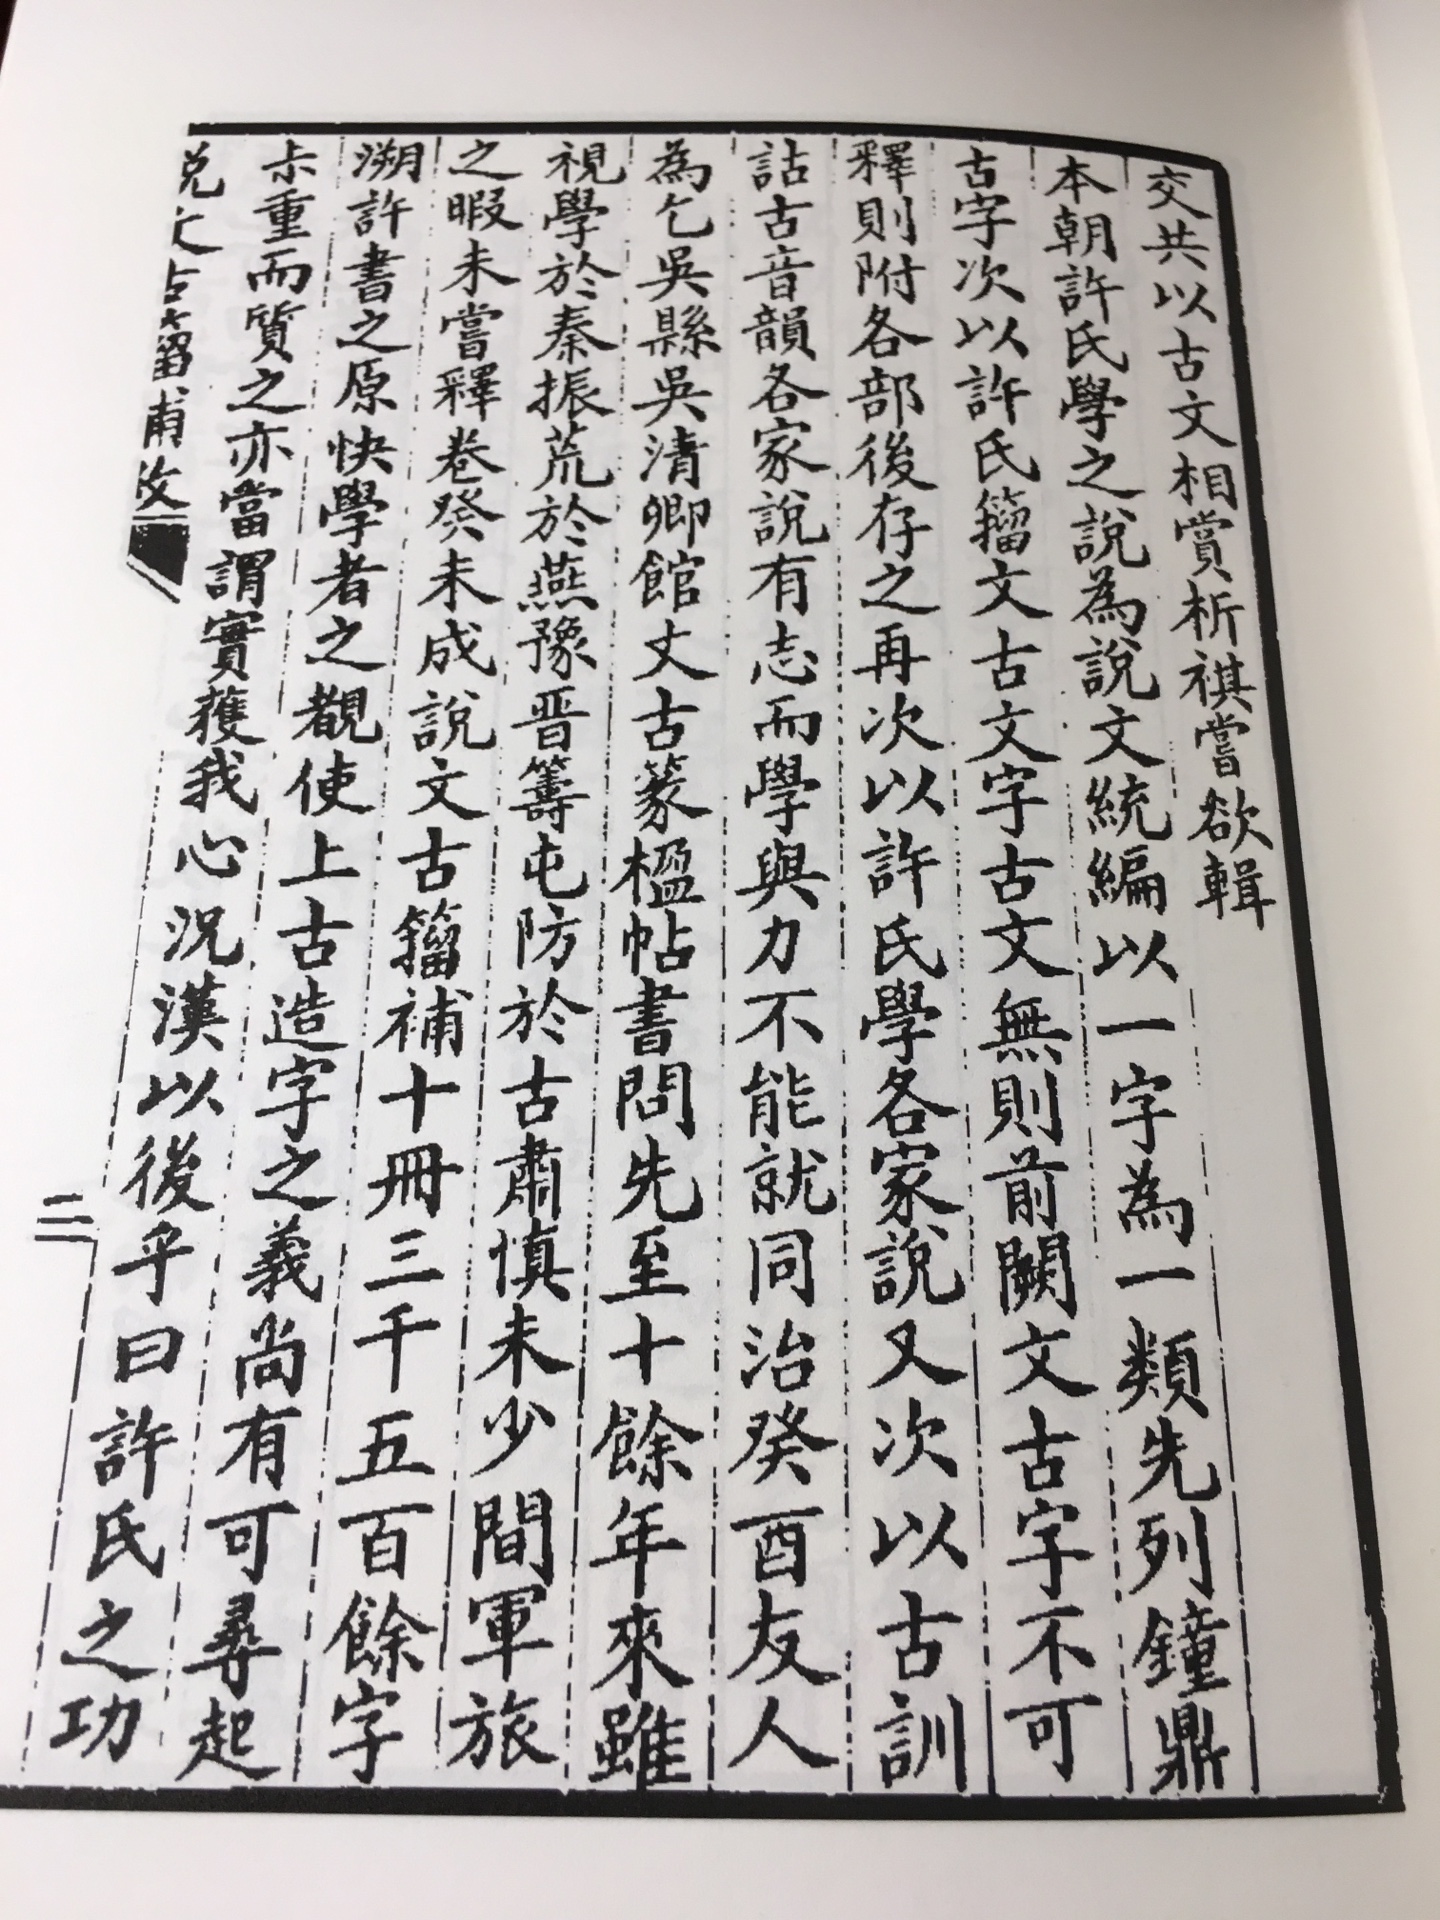 交共以古文相賞析祺嘗欲輯
本朝許氏學之說為說文統編以一字為一類先列鐘鼎
古字次以許氏籀文古文字古文無則前闕文古字不可
釋則附各部後存之再次以許氏學各家說又次以古訓
詁古音韻各家說有志而學與力不能就同治癸酉友人
為乞吳縣吳清卿館丈古篆楹帖書問先至十餘年來雖
視學於秦振荒於燕豫晋籌屯防於古肅慎未少間軍旅
之暇未嘗釋卷癸未成說文古籀補十冊三千五百餘字
溯許書之原快學者之覩使上古造字之義尚有可尋起
尗重而質之亦當謂實獲我心況漢以後乎曰許氏之功
說文古籀補敘
二